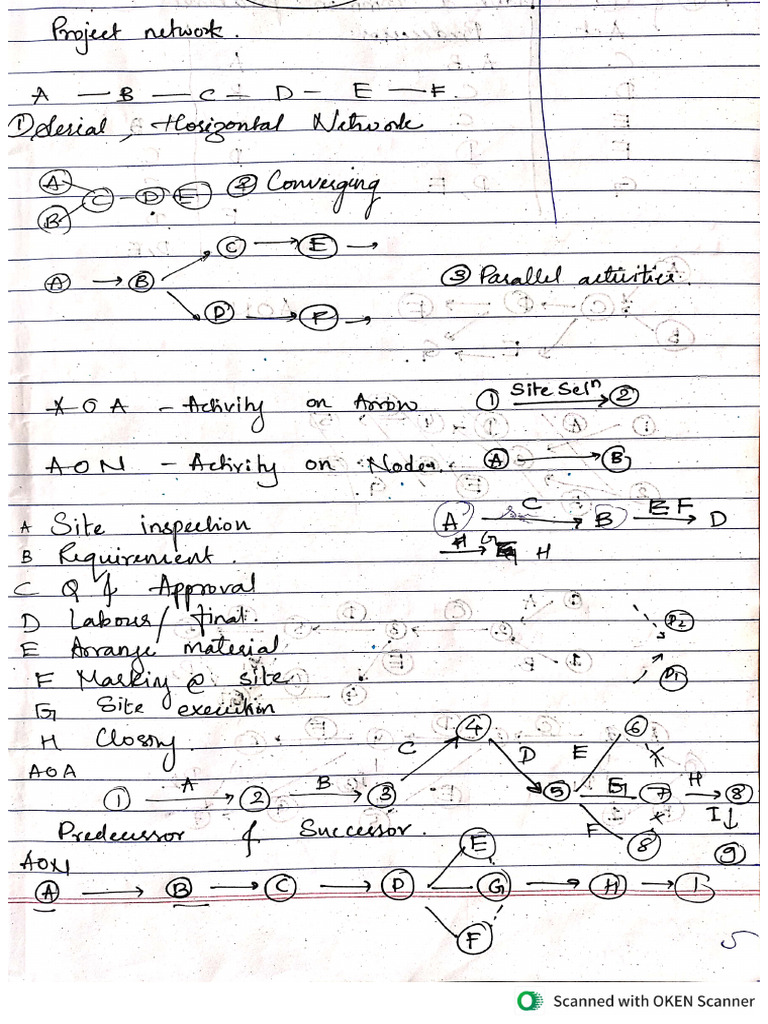 Project network.
A — B — C — D — E — F.
① Serial, Horizontal Network
A B C D E ② Converging
C → E →
A → B ③ Parallel activities.
D → F →
AOA - Activity on Arrow ① Site Selⁿ ②
AON - Activity on Node. A → B
A Site inspection A C B E F D
B Requirement. H G H
C Q & Approval
D Labour / final. P2
E Arrange material
F Marking @ site P1
G Site execution
H Closing. C 4 D E 6 X
AOA
1 A 2 B 3 5 G 7 H 8
F 8 X I ↓ 9
Predecessor & Successor. E
AON
A → B → C → D G → H → I
F
5
Scanned with OKEN Scanner